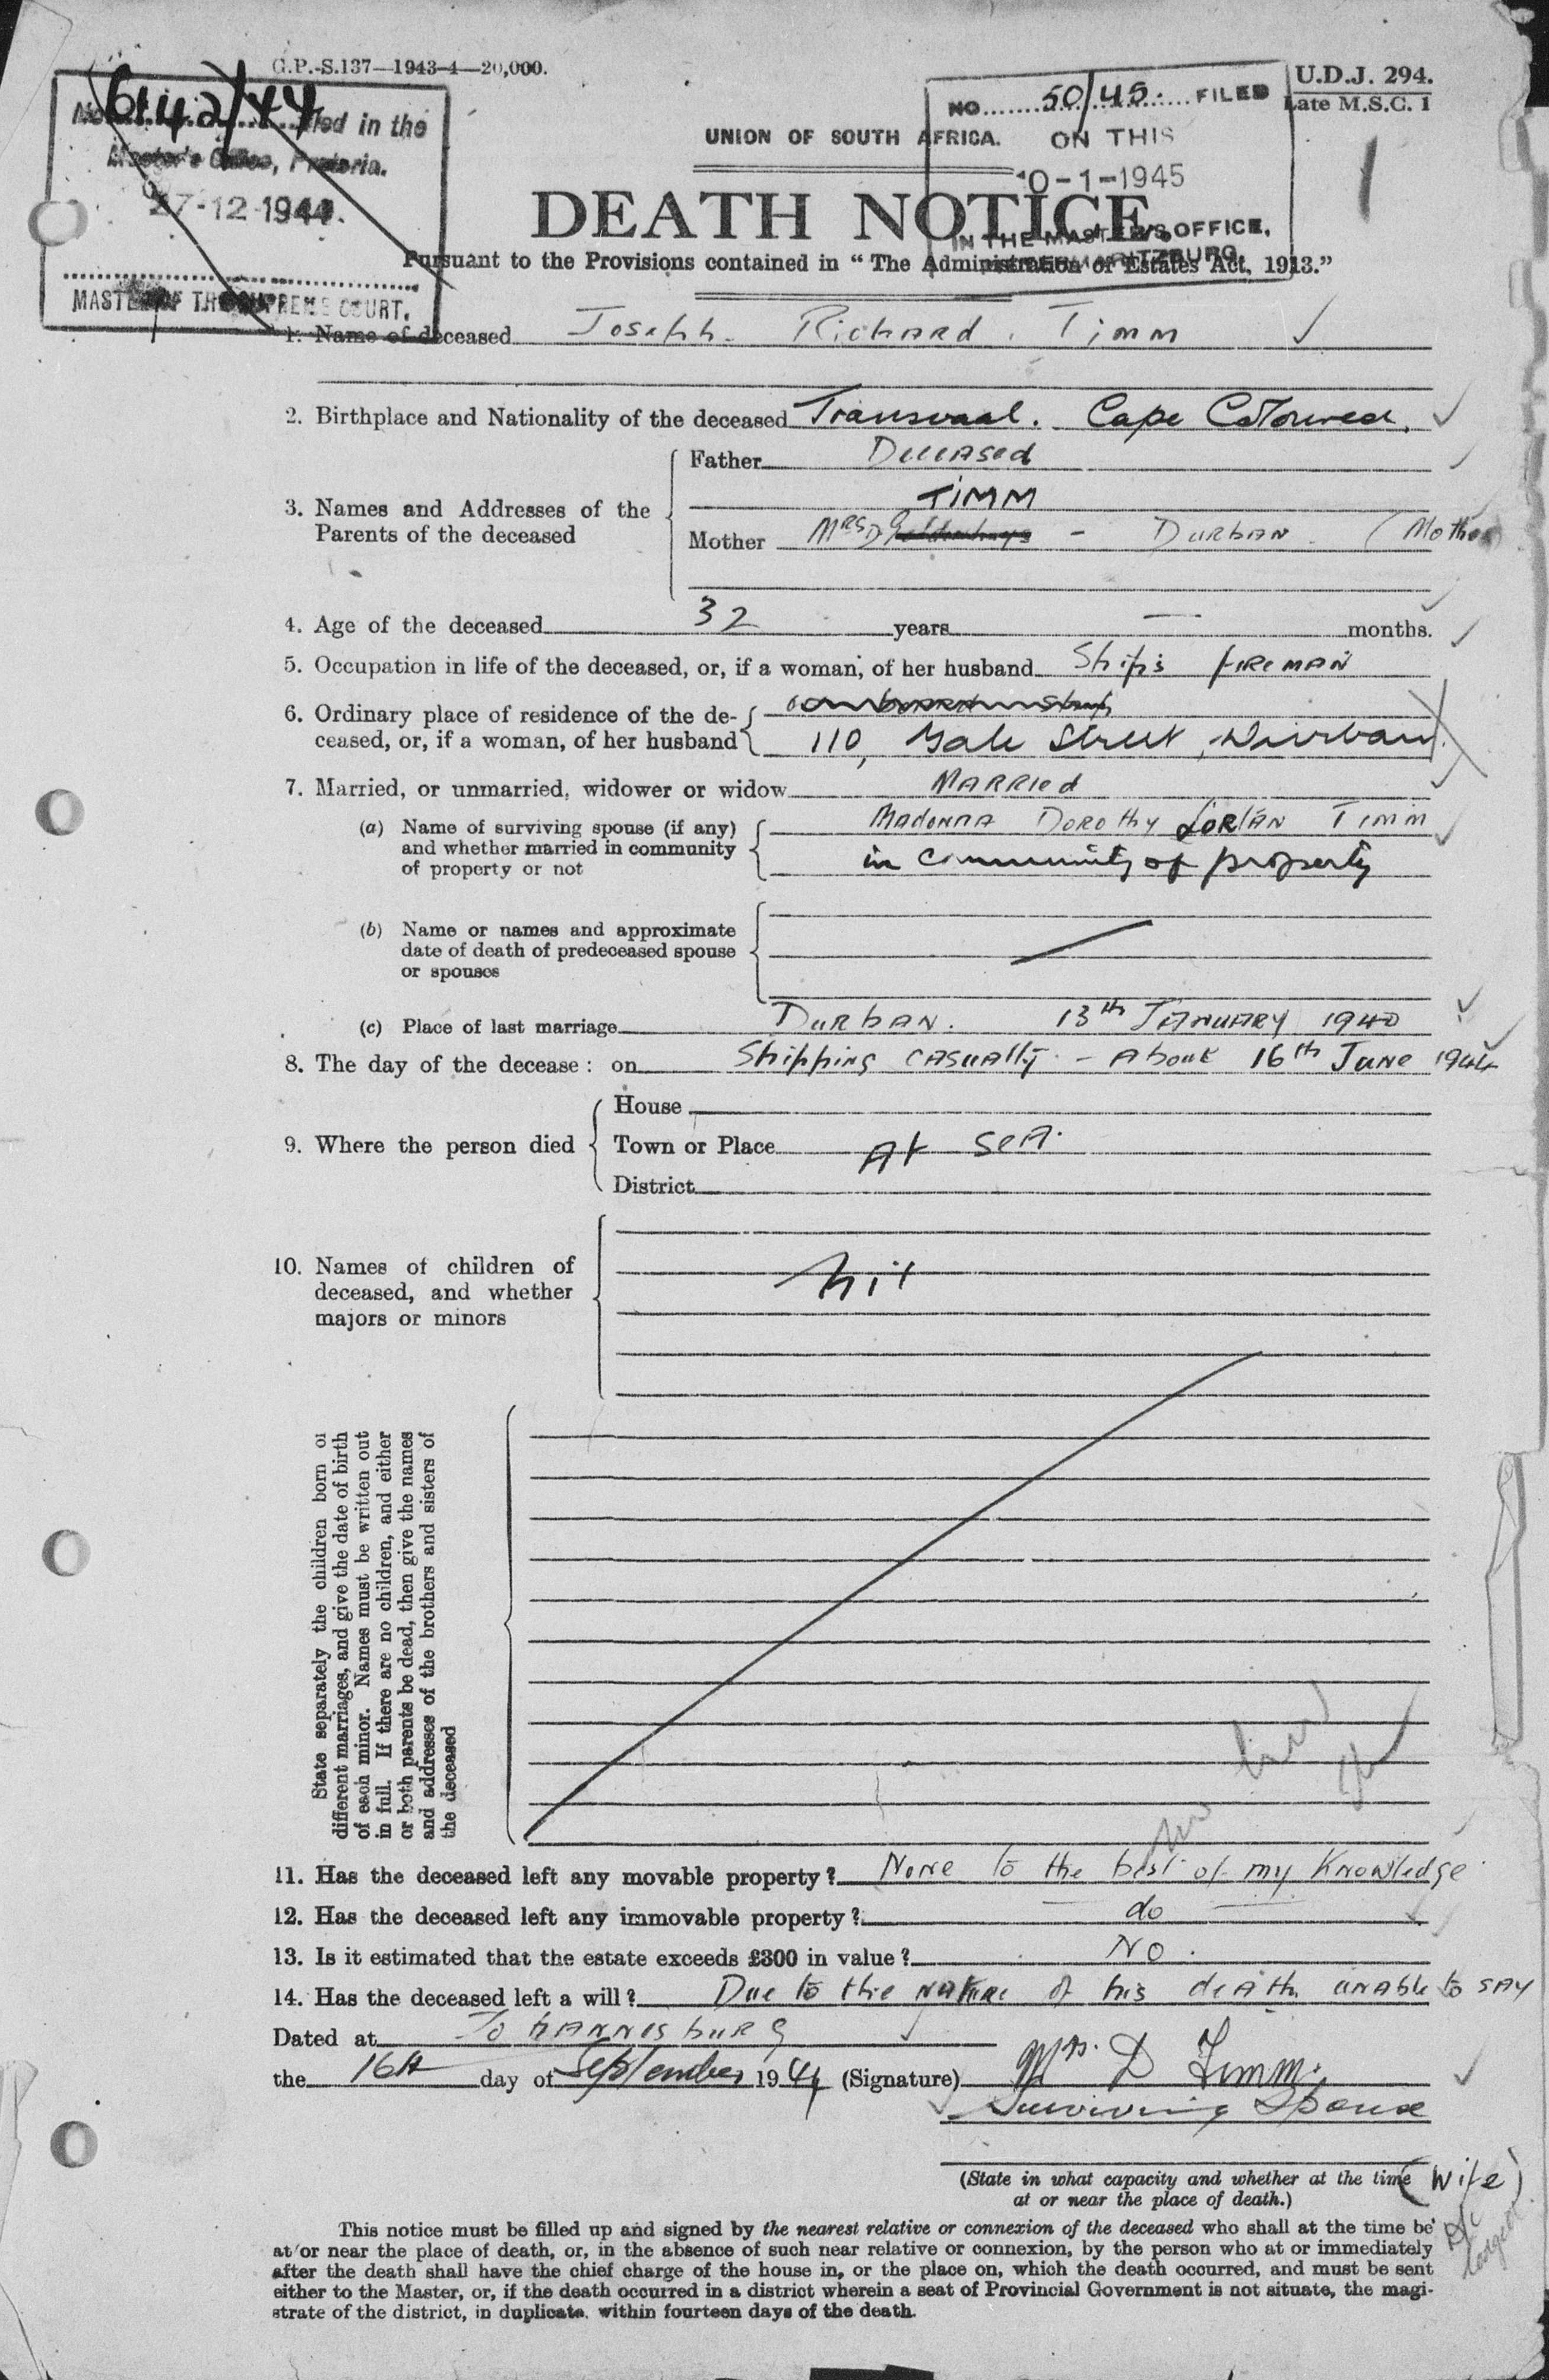 G.P.-S.137—1943-4—20,000.
U.D.J. 294.
Late M.S.C. 1
No. 6142/44 filed in the
Master's Office, Pretoria.
27-12-1944.
MASTER OF THE SUPREME COURT.
NO. 50/45. FILED
ON THIS
10-1-1945
IN THE MASTER'S OFFICE,
1
UNION OF SOUTH AFRICA.
DEATH NOTICE
Pursuant to the Provisions contained in “ The Administration of Estates Act, 1913.”
1. Name of deceased Joseph Richard Timm
2. Birthplace and Nationality of the deceased Transvaal. Cape Coloured.
3. Names and Addresses of the Parents of the deceased
Father Deceased
TIMM
Mother Mrs D - Durban (Mother)
4. Age of the deceased 32 years — months.
5. Occupation in life of the deceased, or, if a woman, of her husband Ship's fireman
6. Ordinary place of residence of the de-
ceased, or, if a woman, of her husband 110, Gale Street, Durban.
7. Married, or unmarried, widower or widow Married
(a) Name of surviving spouse (if any) Madonna Dorothy Timm
and whether married in community in community of property
of property or not
(b) Name or names and approximate
date of death of predeceased spouse
or spouses
(c) Place of last marriage Durban. 13th January 1940
8. The day of the decease : on Shipping casualty - About 16th June 1944
9. Where the person died
House
Town or Place At sea.
District
10. Names of children of
deceased, and whether nil
majors or minors
State separately the children born of
different marriages, and give the date of birth
of each minor. Names must be written out
in full. If there are no children, and either
or both parents be dead, then give the names
and addresses of the brothers and sisters of
the deceased
11. Has the deceased left any movable property? None to the best of my knowledge
12. Has the deceased left any immovable property? — do —
13. Is it estimated that the estate exceeds £300 in value? No.
14. Has the deceased left a will? Due to the nature of his death unable to say
Dated at Johannisburg
the 16th day of September 1944 (Signature) Mrs. D Timm.
Surviving Spouse
(State in what capacity and whether at the time (wife)
at or near the place of death.)
This notice must be filled up and signed by the nearest relative or connexion of the deceased who shall at the time be
at or near the place of death, or, in the absence of such near relative or connexion, by the person who at or immediately
after the death shall have the chief charge of the house in, or the place on, which the death occurred, and must be sent
either to the Master, or, if the death occurred in a district wherein a seat of Provincial Government is not situate, the magi-
strate of the district, in duplicate, within fourteen days of the death.